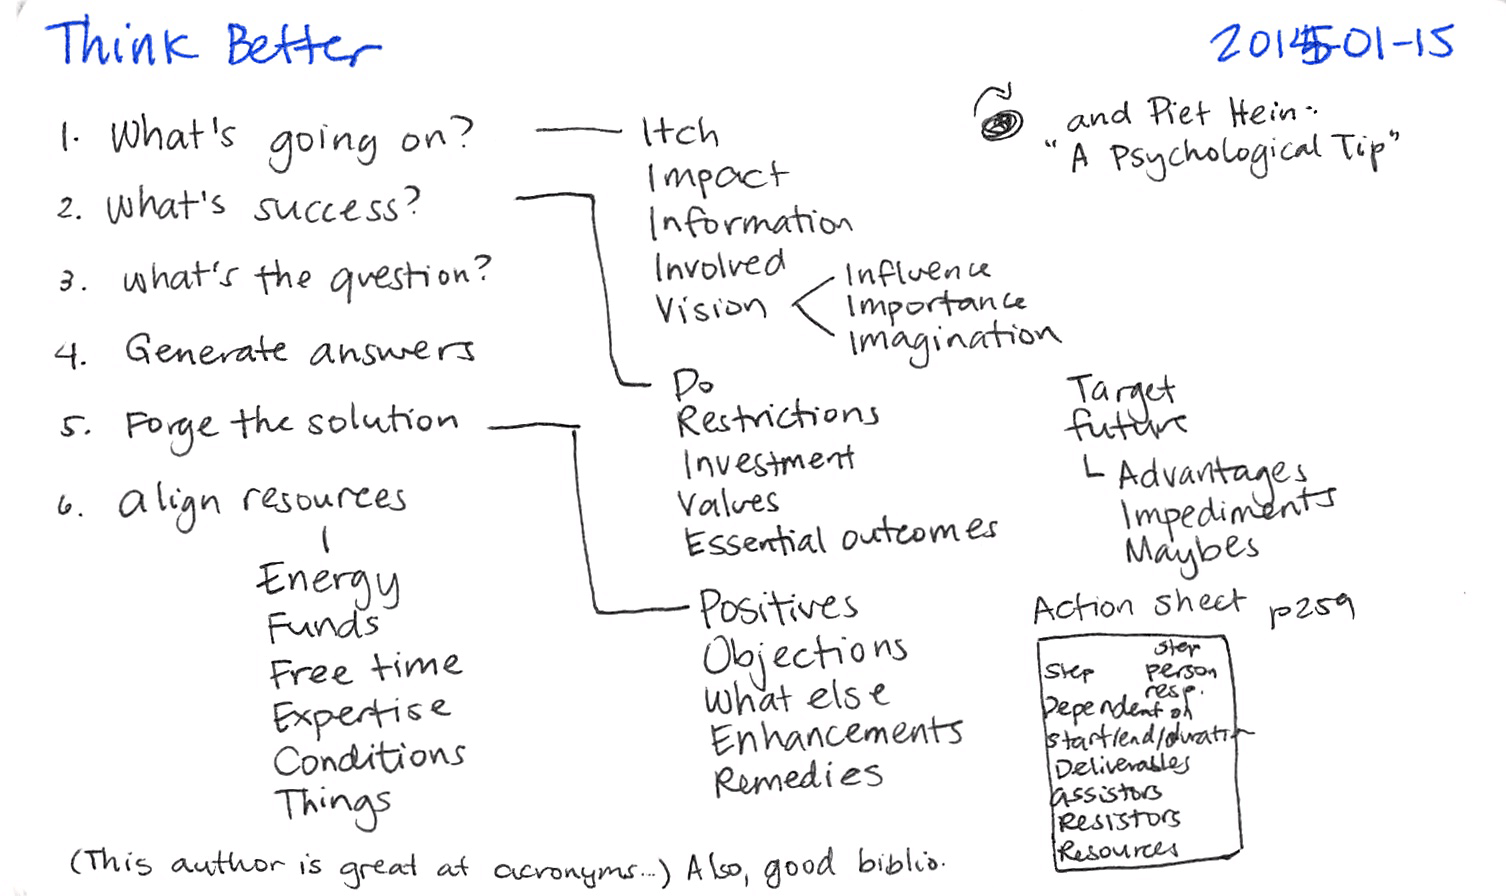 Think Better
2015-01-15
1. What's going on?
2. What's success?
3. what's the question?
4. Generate answers
5. Forge the solution
6. align resources
Energy
Funds
Free time
Expertise
Conditions
Things
Itch
Impact
Information
Involved
Vision
Influence
Importance
Imagination
Do
Restrictions
Investment
Values
Essential outcomes
Positives
Objections
What else
Enhancements
Remedies
and Piet Hein:
"A Psychological Tip"
Target
future
Advantages
Impediments
Maybes
Action sheet p259
step
Step person
resp.
Dependent on
start/end/duration
Deliverables
assistors
Resistors
Resources
(This author is great at acronyms...) Also, good biblio.